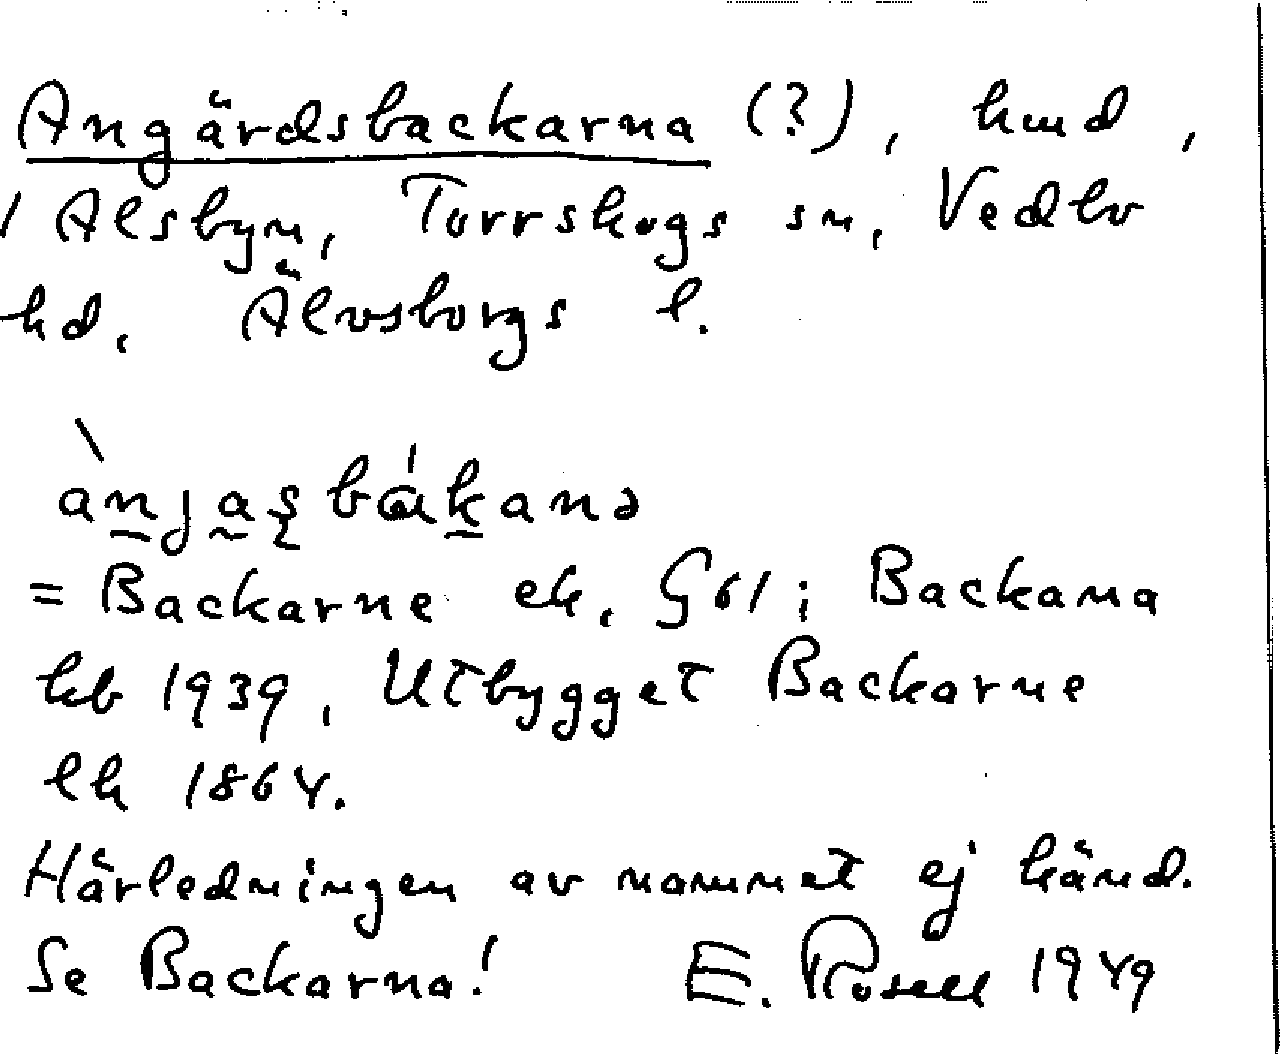 Angärdsbackarna (?), hmd,
i Alsbyn, Torrskogs sn, Vedbo
hd, Älvsborgs l.
= Backarne ek. G 61; Backarna
kb 1939, Utbygget Backarne
lk 1864.
Härledningen av namnet ej känd.
Se Backarna! E. Rosell 1949